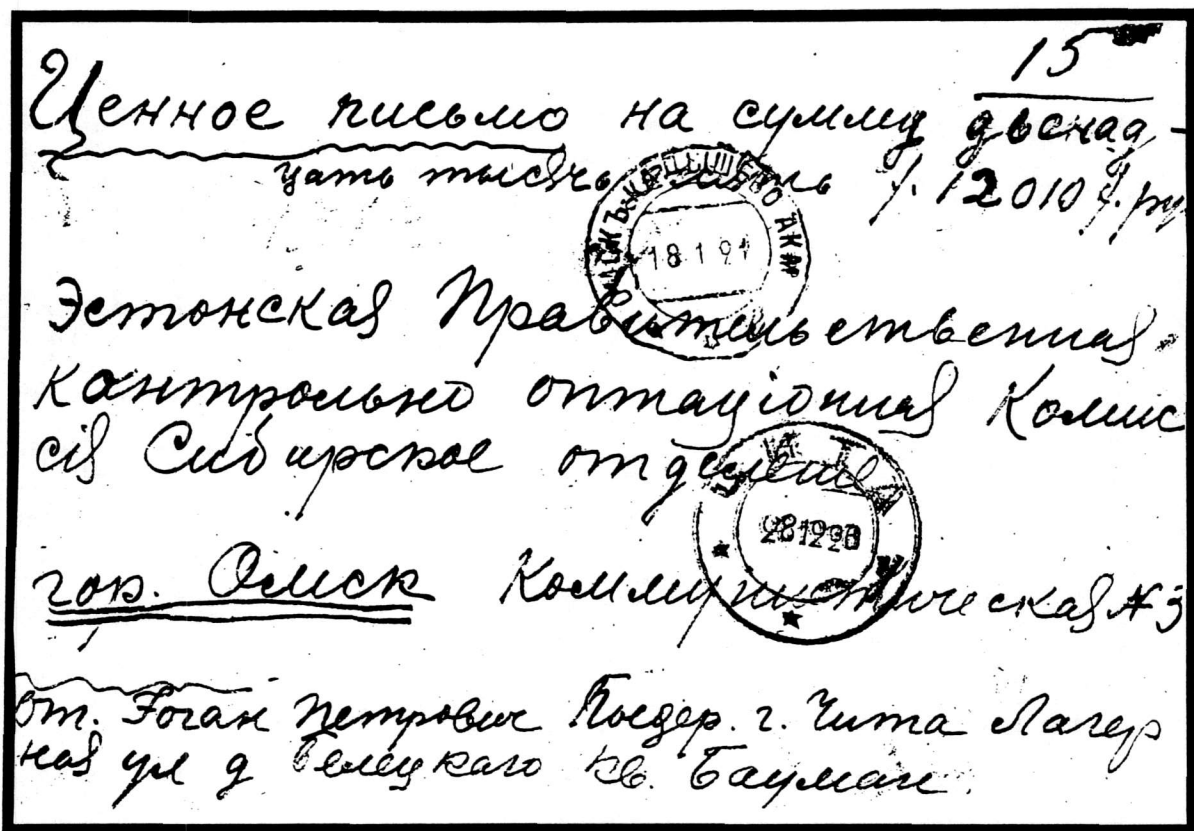 15
Ценное письмо на сумму двенад-
цать тысячь 12010 ру
18 1 21
Эстонская Правительственная
кантрольно оптаціонная Комис
сія Сибирское отделение
ЧИТА
281220
гор. Омск Коммунистическая №3
От. Іоган Петрович г. Чита Лагер
ная ул д Белецкаго кв. Бауман.